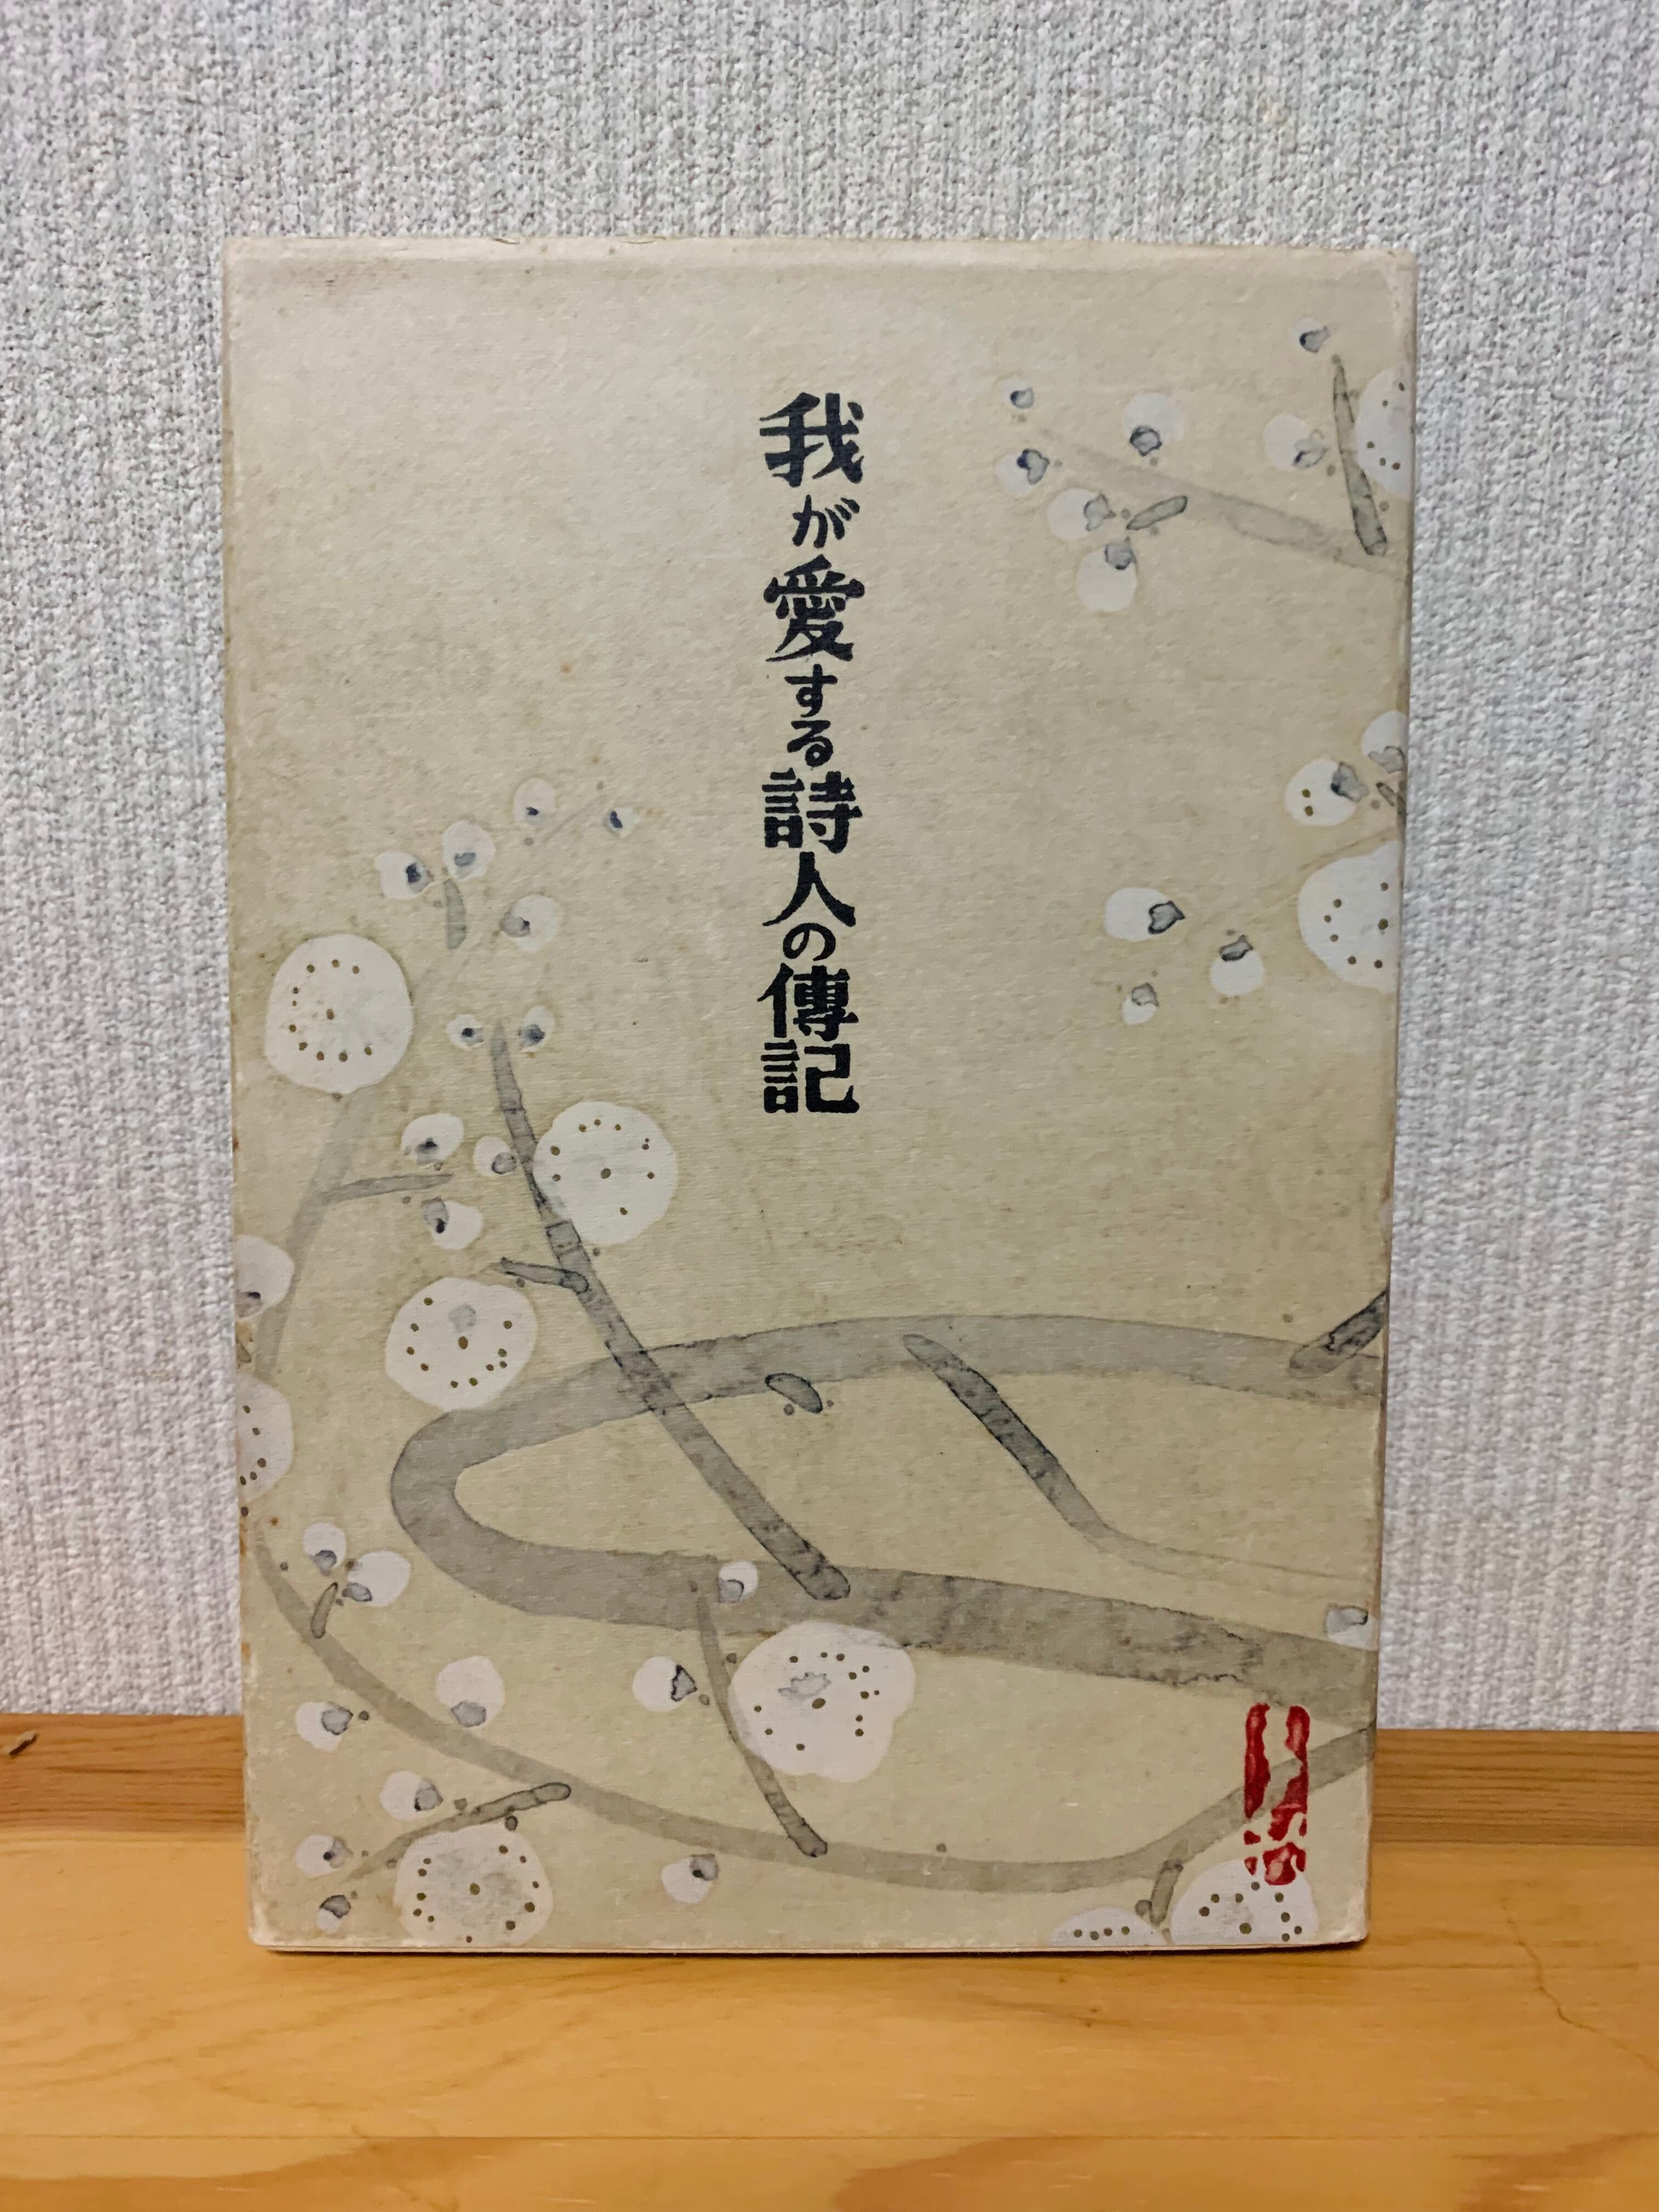 我が愛する詩人の傳記